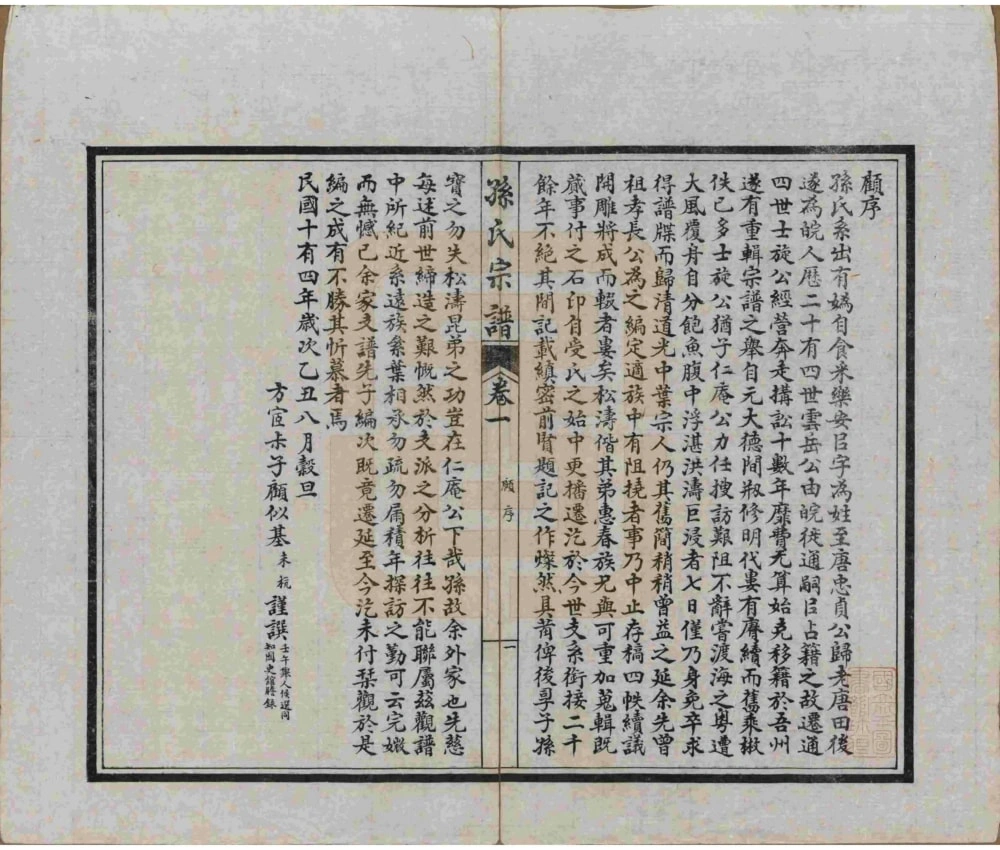 顧序
孫氏系出有媯自食采樂安㠯字為姓至唐忠貞公歸老唐田後
遂為皖人歷二十有四世雲岳公由皖徙通嗣㠯占籍之故遷通
四世士旋公經營奔走搆訟十數年靡費无算始克移籍於吾州
遂有重輯宗譜之舉自元大德間刱修明代婁有賡續而舊乘散
佚已多士旋公猶子仁庵公力任搜訪艱阻不辭嘗渡海之粵遭
大風覆舟自分飽魚腹中浮湛洪濤巨浸者七日僅乃身免卒求
得譜牒而歸清道光中葉宗人仍其舊簡稍稍曾益之延余先曾
祖孝長公為之編定適族中有阻撓者事乃中止存稿四帙續議
開雕將成而輟者婁矣松濤偕其弟惠春族兄與可重加蒐輯既
蕆事付之石印自受氏之始中更播遷汔於今世支系銜接二千
餘年不絕其間記載縝密前賢題記之作燦然具葡俾後孠子孫
寶之勿失松濤昆弟之功豈在仁庵公下哉孫故余外家也先慈
每述前世締造之艱慨然於支派之分析往往不能聯屬茲觀譜
中所紀近系遠族絫葉相承勿疏勿屚積年探訪之勤可云完媺
而無憾已余家支譜先子編次既竟遷延至今汔未付栞觀於是
編之成有不勝其忻慕者焉
民國十有四年歲次乙丑八月穀旦
方宧夫子顧似基 謹譔 壬午舉人候選同知國史館謄錄
孫氏宗譜
卷一
顧序
一